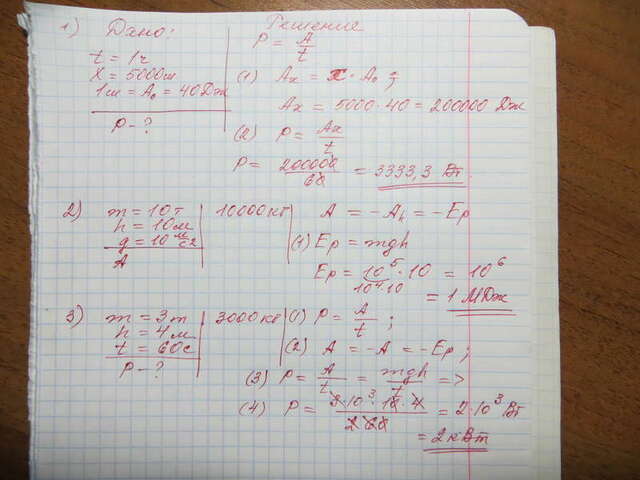 1) Дано:
t = 1ч
X = 5000ш
1ш = A₀ = 40Дж
P - ?
Решение
P = A/t
(1) Ax = x · A₀ ;
Ax = 5000·40 = 200000 Дж
(2) P = Ax/t
P = 200000/60 = 3333,3 Вт.
2) m = 10т | 10000кг
h = 10м
g = 10 м/с2
A
A = -Ah = -Ep
(1) Ep = mgh
Ep = 10⁵·10 = 10⁶
10⁴·10
= 1 МДж
3) m = 3т | 3000кг
h = 4м
t = 60с
P - ?
(1) P = A/t ;
(2) A = -A = -Ep ;
(3) P = A/t = mgh/t =>
(4) P = 3·10³·10·4/2 60 = 2·10³ Вт
= 2кВт